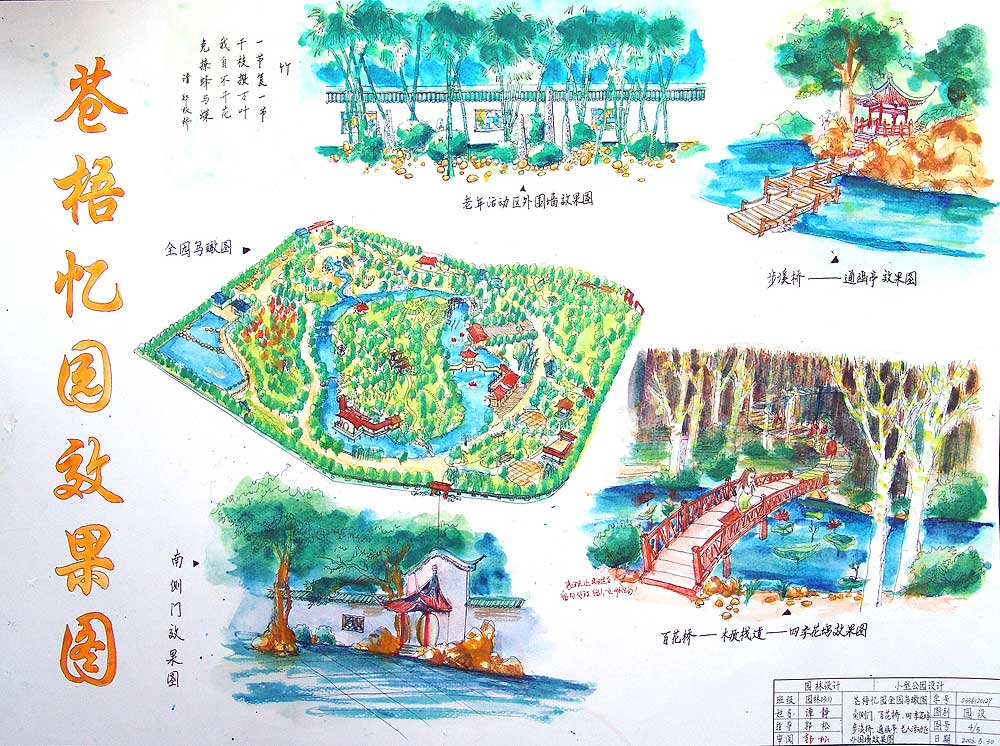 苍梧忆园效果图
竹
一节复一节
千枝攒万叶
我自不开花
免撩蜂与蝶
老年活动区外围墙效果图
步溪桥——通幽亭效果图
全园鸟瞰图
南侧门效果图
百花桥——木板栈道——四季花坞效果图
园林设计 小型公园设计
班级 园林
苍梧忆园全园鸟瞰图 学号
姓名 谭静
南侧门、百花桥、四季花坞 图别 园设
指导 郭松
图号 4/5
审阅 郭松
外围墙效果图 日期 2006.5.30